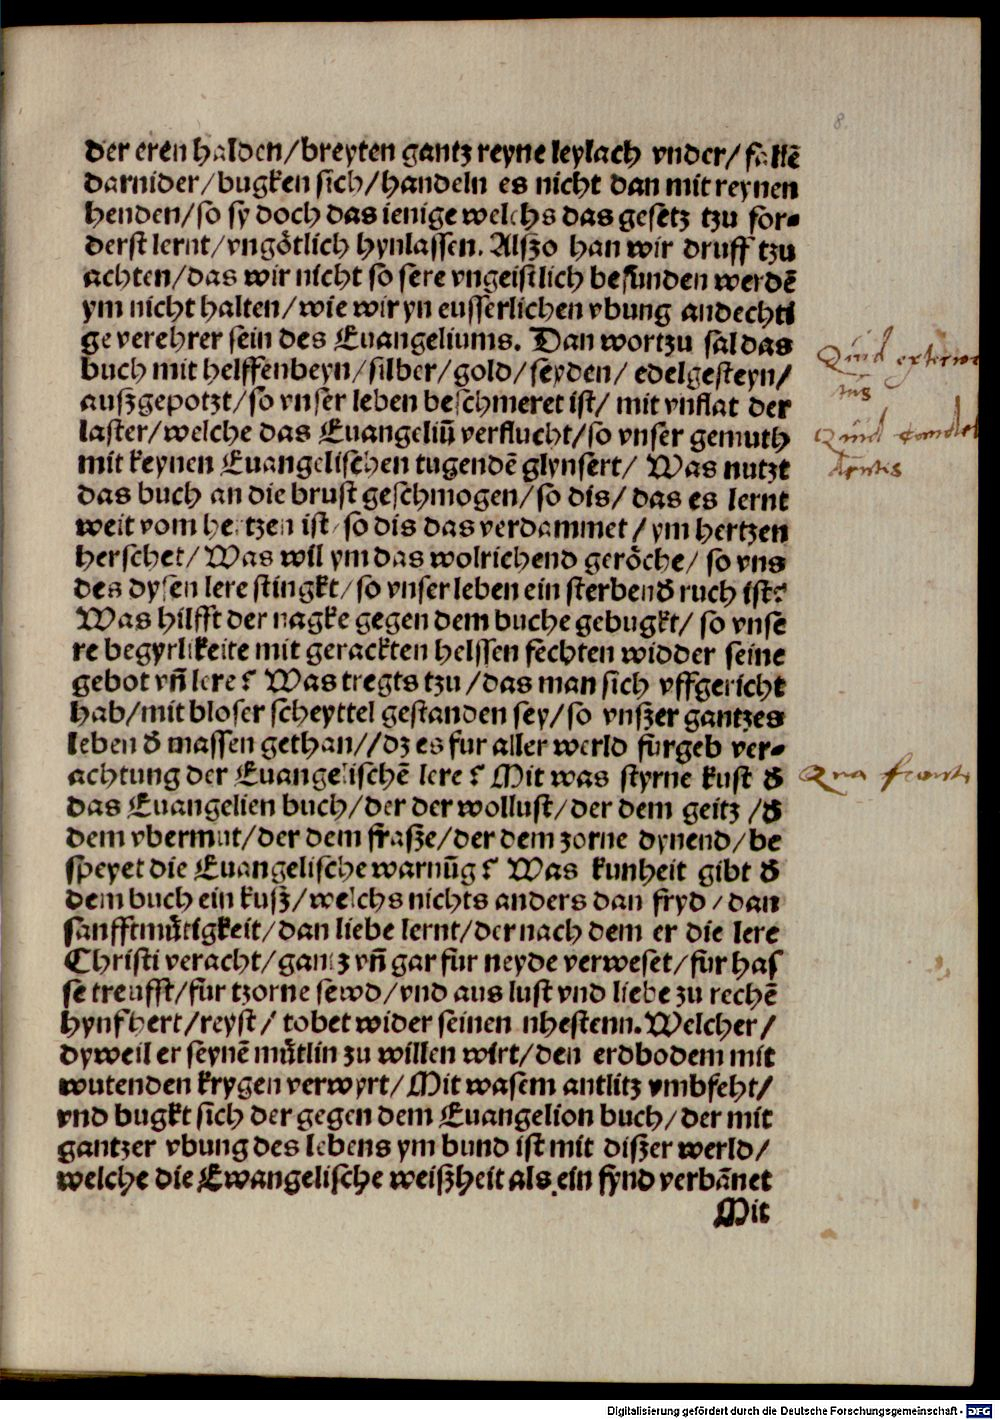 8.
der eren halden/breyten gantz reyne leylach vnder/ fallē
darnider/bugken sich/handeln es nicht dan mit reynen
henden/so sy doch das ienige welchs das gesetz tzu for-
derst lernt/vngötlich hynlassen. Alßo han wir druff tzu
achten/das wir nicht so sere vngeistlich befunden werdē
ym nicht halten/wie wir yn eusserlichen vbung andechti
ge verehrer sein des Euangeliums. Dan wortzu sal das
buch mit helffenbeyn/silber/gold/seyden/ edelgesteyn/
außgepotzt/so vnser leben beschmeret ist/ mit vnflat der
laster/welche das Euangeliū verflucht/so vnser gemuth
mit keynen Euangelischen tugendē glynsert/ Was nutzt
das buch an die brust geschmogen/so dis/ das es lernt
weit vom hertzen ist/so dis das verdammet/ ym hertzen
herschet/ Was wil ym das wolrichend geröche/ so vns
des dysen lere stingkt/so vnser leben ein sterbend ruch ist?
Was hilfft der nagke gegen dem buche gebugkt/ so vnse
re begyrlikeite mit gerackten helssen fechten widder seine
gebot vn̄ lere? Was tregts tzu/das man sich vffgericht
hab/mit bloser scheyttel gestanden sey/so vnßer gantzes
leben d̕ massen gethan//dz es fur aller werld fürgeb ver-
achtung der Euangelischē lere? Mit was styrne kust d̕
das Euangelien buch/der der wollust/der dem geitz /d̕
dem vbermut/der dem fraße/der dem zorne dynend/be
speyet die Euangelische warnūg? Was kunheit gibt d̕
dem buch ein kuß/welchs nichts anders dan fryd/dan
sanfftmütigkeit/dan liebe lernt/der nach dem er die lere
Christi veracht/gantz vn̄ gar für neyde verweset/für has
se treufft/für tzorne sewd/vnd aus lust vnd liebe zu rechē
hynfhert/reyst/ tobet wider seinen nhestenn. Welcher/
dyweil er seynē mütlin zu willen wirt/den erdbodem mit
wutenden krygen verwyrt/Mit wasem antlitz vmbfeht/
vnd bugkt sich der gegen dem Euangelion buch/der mit
gantzer vbung des lebens ym bund ist mit dißer werld/
welche die Ewangelische weißheit als ein fynd verbānet
Mit
Quid
Quid
Qua
Digitalisierung gefördert durch die Deutsche Forschungsgemeinschaft - DFG